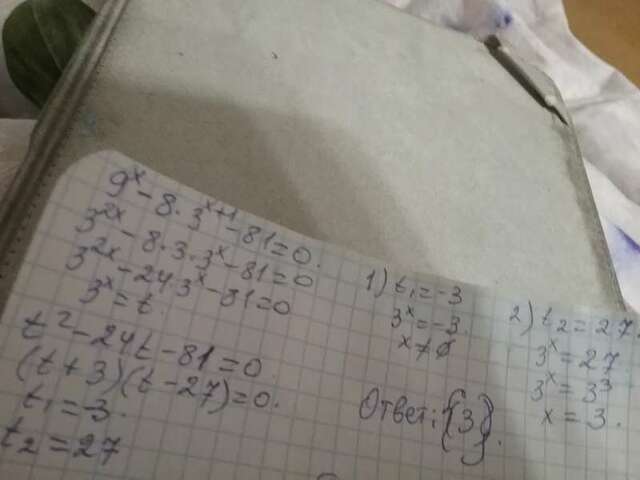 9^x - 8·3^{x+1} - 81 = 0.
3^{2x} - 8·3·3^x - 81 = 0
3^{2x} - 24·3^x - 81 = 0
3^x = t.
t² - 24t - 81 = 0
(t + 3)(t - 27) = 0.
t₁ = -3.
t₂ = 27
1) t₁ = -3
3^x = -3.
x ≠ ∅
2) t₂ = 27.
3^x = 27
3^x = 3³
x = 3.
Ответ: {3}.